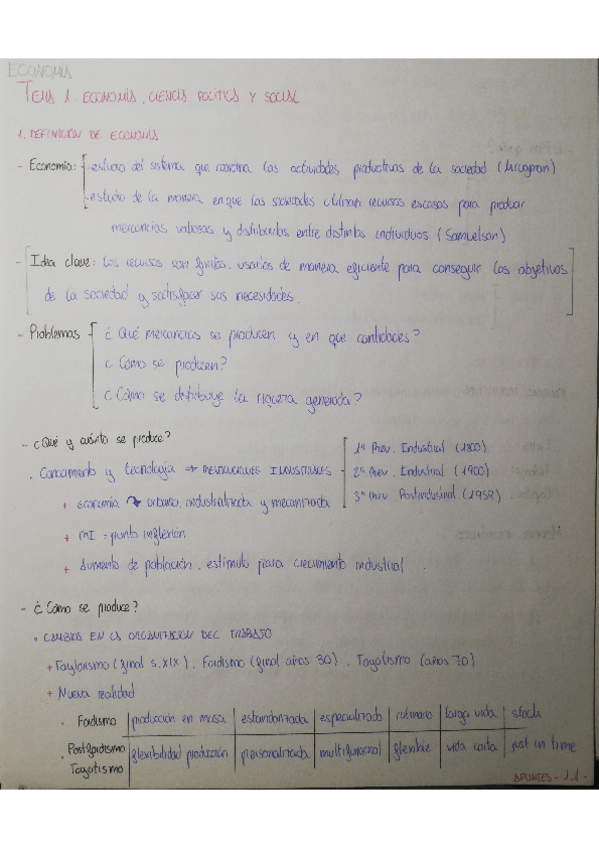 ECONOMIA
TEMA 1. ECONOMÍA, CIENCIA POLÍTICA Y SOCIAL
1. DEFINICIÓN DE ECONOMIA
- Economía: - estudio del sistema que coordina las actividades productivas de la sociedad (Krugman)
- estudio de la manera en que las sociedades utilizan recursos escasos para producir
mercancías valiosas y distribuirlas entre distintos individuos (Samuelson)
- Idea clave: los recursos son finitos, usarlos de manera eficiente para conseguir los objetivos
de la sociedad y satisfacer sus necesidades.
- Problemas ¿Qué mercancias se producen y en que cantidades?
¿Cómo se producen?
¿Cómo se distribuye la riqueza generada?
- ¿Qué y cuánto se produce?
• Conocimiento y tecnología → REVOLUCIONES INDUSTRIALES
1ª Rev. Industrial (1800)
2ª Rev. Industrial (1900)
3ª Rev. Postindustrial (1959)
+ economía urbana, industrializada y mecanizada
+ MI = punto inflexión
+ Aumento de población, estímulo para crecimiento industrial.
- ¿Cómo se produce?
• CAMBIOS EN LA ORGANIZACION DEL TRABAJO
+ Taylorismo (final s.XIX), Fordismo (final años 30), Toyotismo (años 70)
+ Nueva realidad
• Fordismo producción en masa estandarizada especializado rutinario larga vida stock
• Postfordismo Toyotismo flexibilidad producción personalizada multifuncional flexible vida corta just in time
APUNTES - 1.1 -